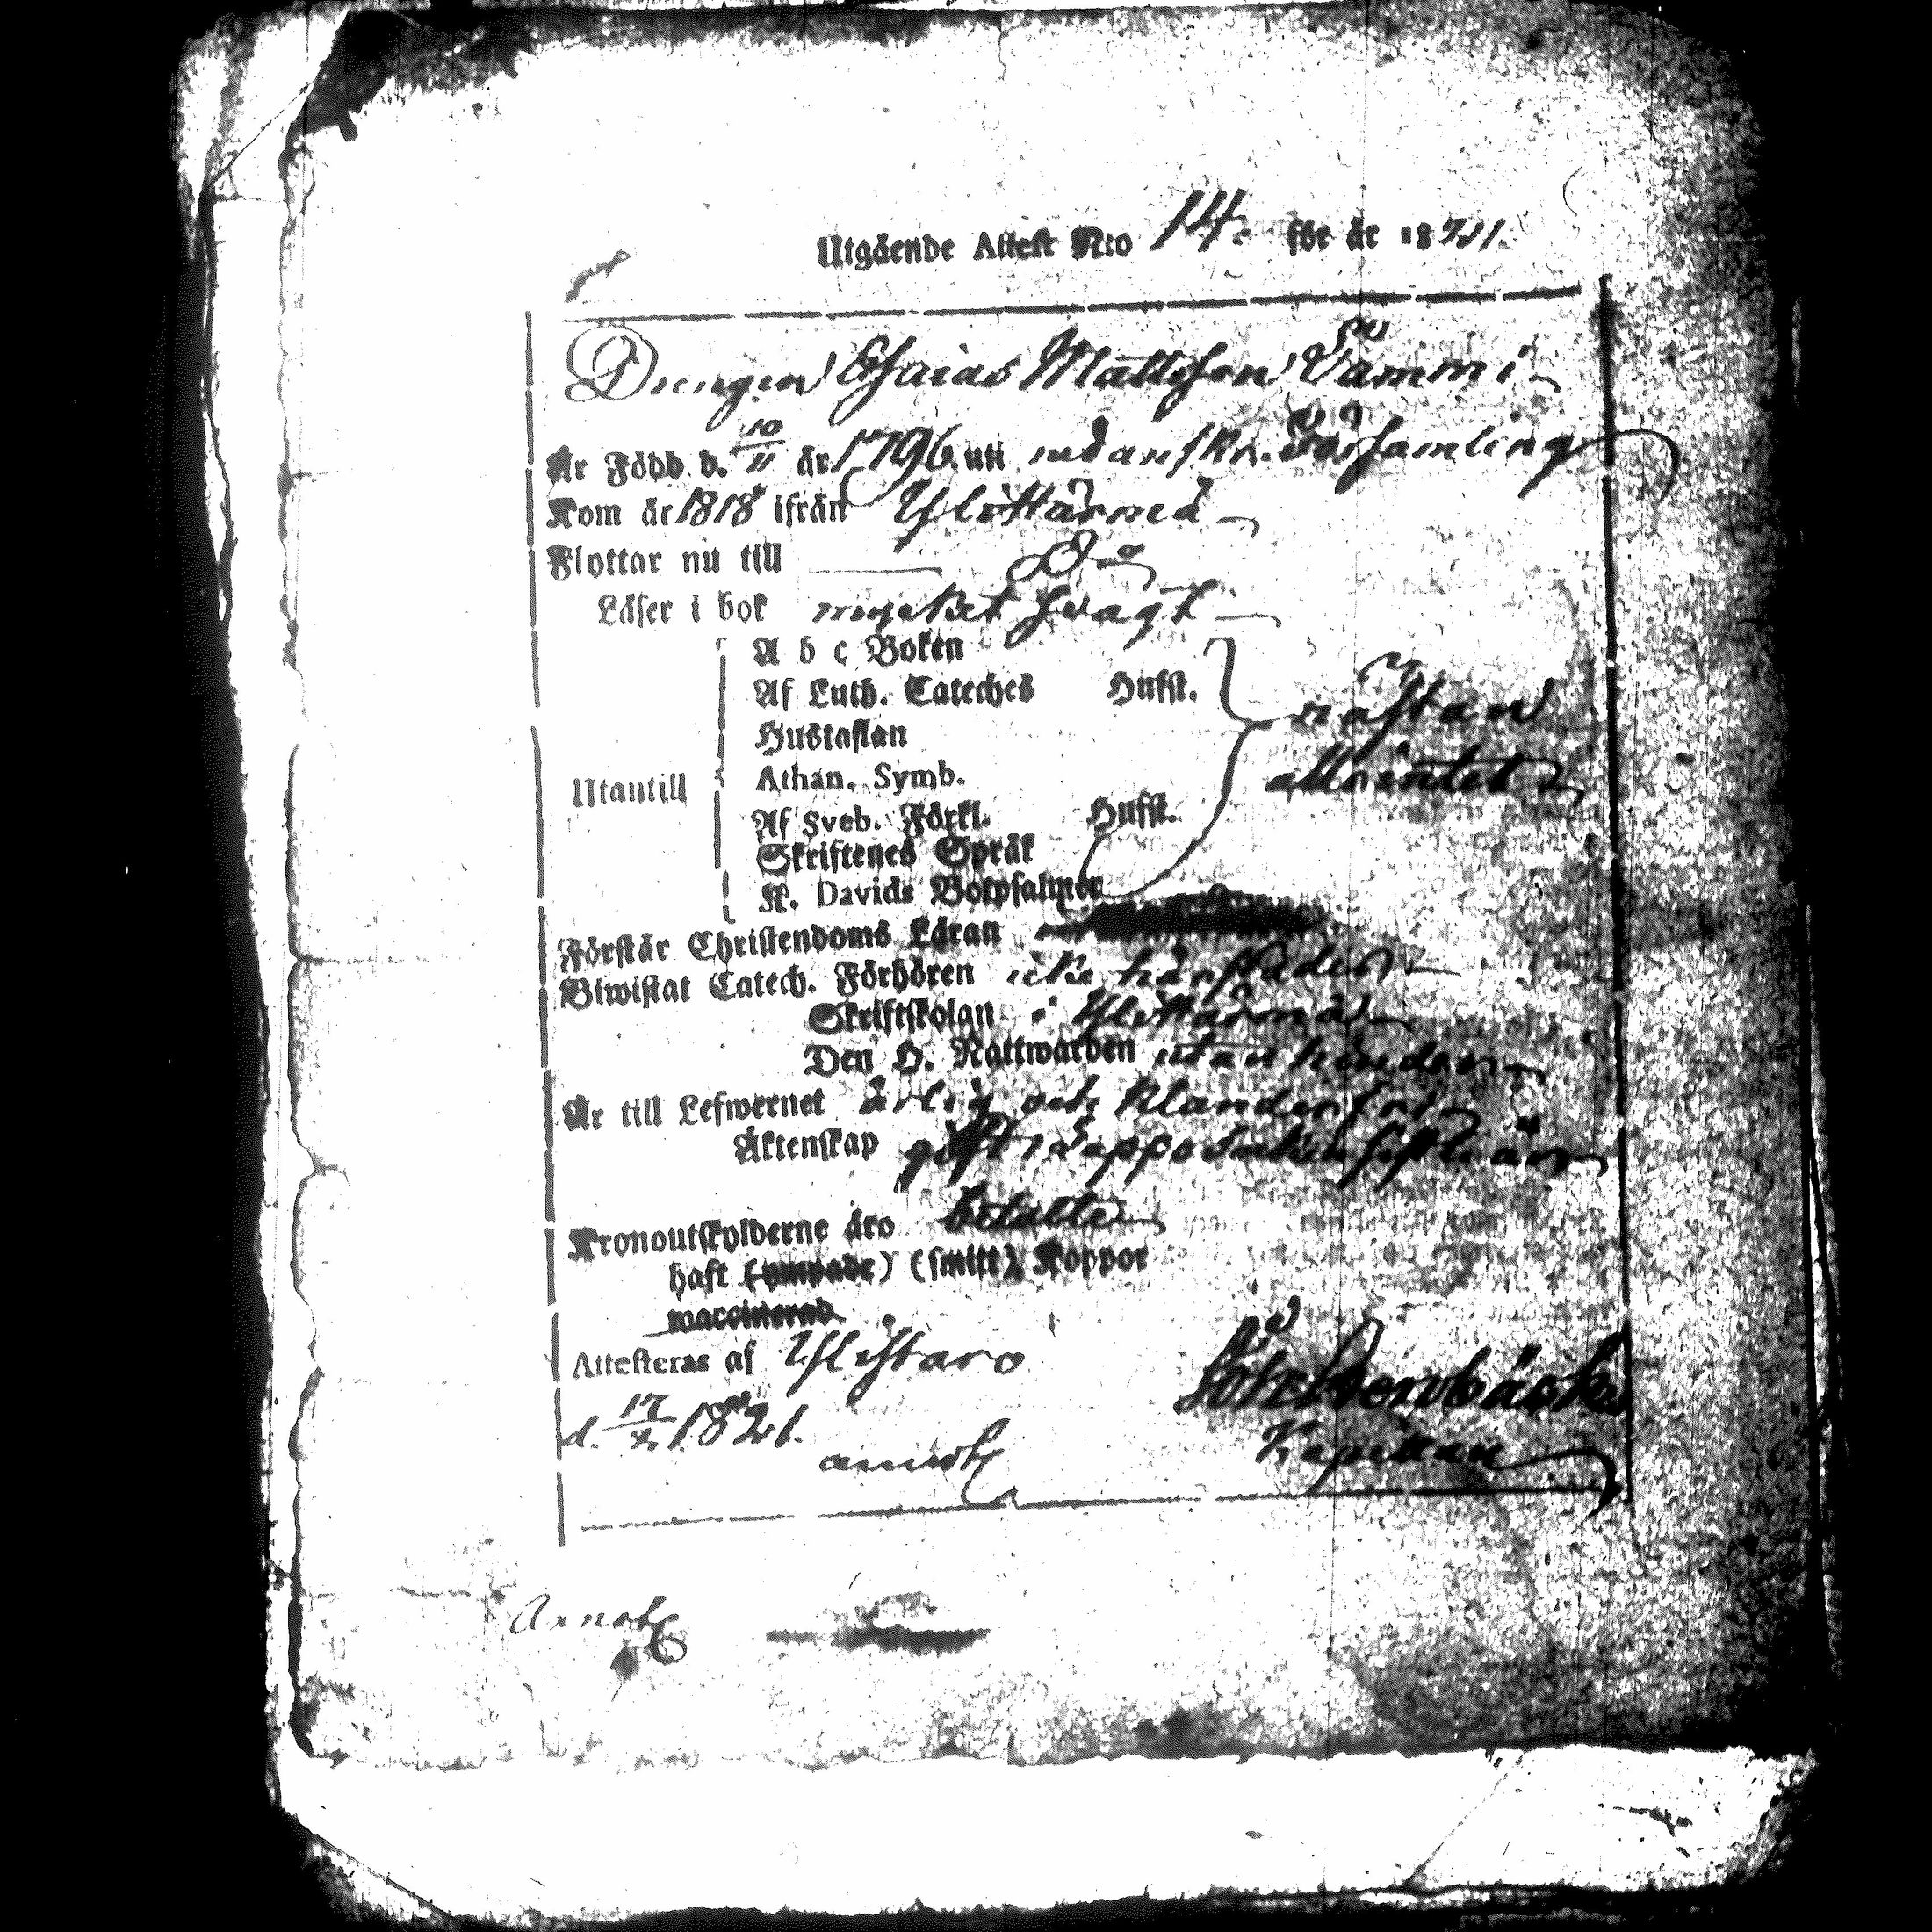 Utgående Attest N:o 14. för år 1821.
Drengen Esaias Mattsson Vammi
Är Född d. 10/11 år 1796. uti nedanskr. Församling
Kom år 1818 ifrån Ylikittärmä
Flyttar nu till D:o
Läser i bok mycket svagt
A b c Boken
Af Luth. Cateches Hufst.
Hustaflan
nästan
Utantill
Athan. Symb.
allsintet
Af Sveb. Förkl. Hufst.
Skriftenes Språk
K. Davids Botpsalmer
Förstår Christendoms Läran
Biwistat Catech. Förhören icke härstädes
Skriftskolan i
Den H. Nattwarden utan hinder
Är till Lefwernet ärlig och klanderfri
Äktenskap gift i Lappo
Kronoutskylderne äro betalte
haft (ympade) (smitt) Koppor
waccinerad
Attesteras af Ylistaro
d. 17/2 1821.
Kapellan